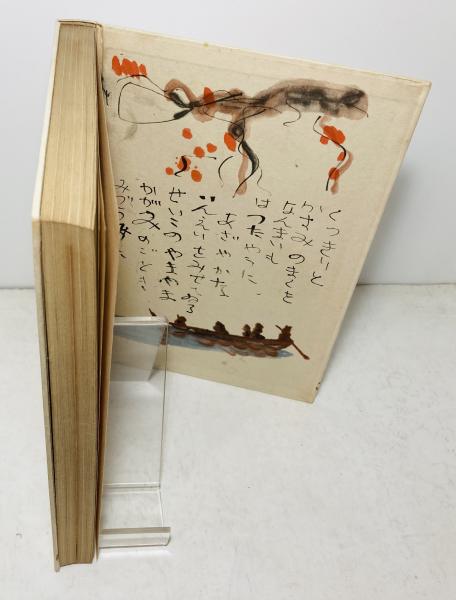 くっきりと
かすみのまくを
なんまいも
はつたやうに、
あざやかな
いんえいをみせてゐる
せいこのやまやま
かがみのごとき
みづのうみに